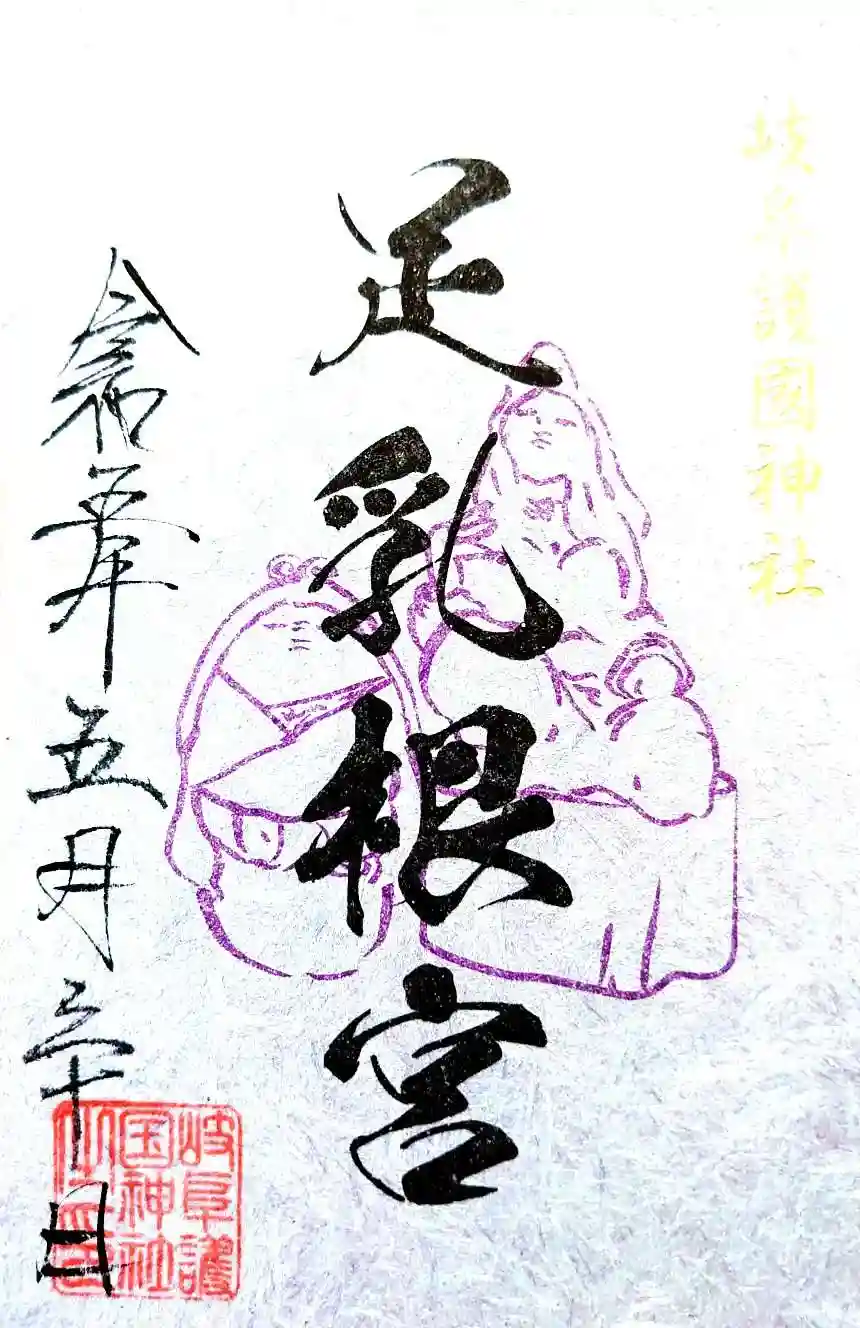 岐阜護國神社
足乳根宮
令和五年五月三十日
岐阜護
国神社
之印